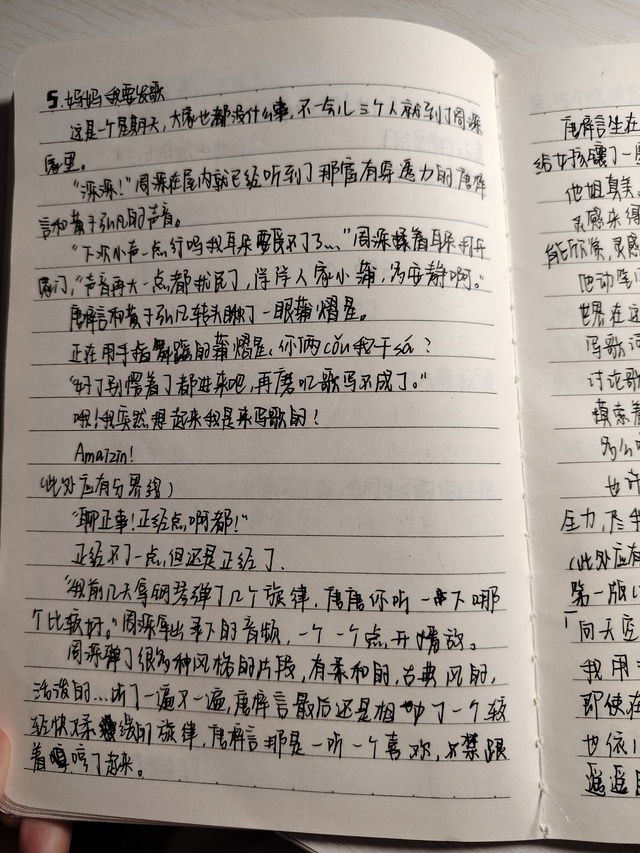 5.妈妈我要发歌
这是一个星期天,大家也都没什么事,不一会儿三个人就到了周深
屋里。
“深深!”周深在屋内就已经听到了那富有穿透力的唐
言和黄子弘凡的声音。
“下次小声一点行吗我耳朵要聋了…”周深揉着耳朵打开
房门,“声音再大一点都扰民了,人家小蒲,多安静啊。”
唐言和黄子弘凡转头瞅了一眼蒲熠星。
正在用手指舞蹈的蒲熠星,你俩cǒu我干sá?
“好了别愣着了都进来吧,再磨叽歌写不成了。”
哦!我突然想起来我是来写歌的!
Amazin!
(此处应有分界线)
“聊正事!正经点,啊都!”
正经不了一点,但还是正经了.
“我前几天拿钢琴弹了几个旋律,唐唐你听一下哪
个比较好。”周深拿出录下的音频,一个一个点开播放。
周深弹了很多种风格的片段,有柔和的,古典风的,
活泼的…听了一遍又一遍,唐言最后还是相中了一个较
轻快又柔的旋律,唐言那是一听一个喜欢,不禁跟
着哼了起来。
唐言生在
给
他
灵感来得
能欣赏,灵感
他动笔
世界在这
写歌词
讨论歌
摸索着
为什么
也许
压力,
(此处应有
第一版
同天
我用
即使在
也依
遥遥